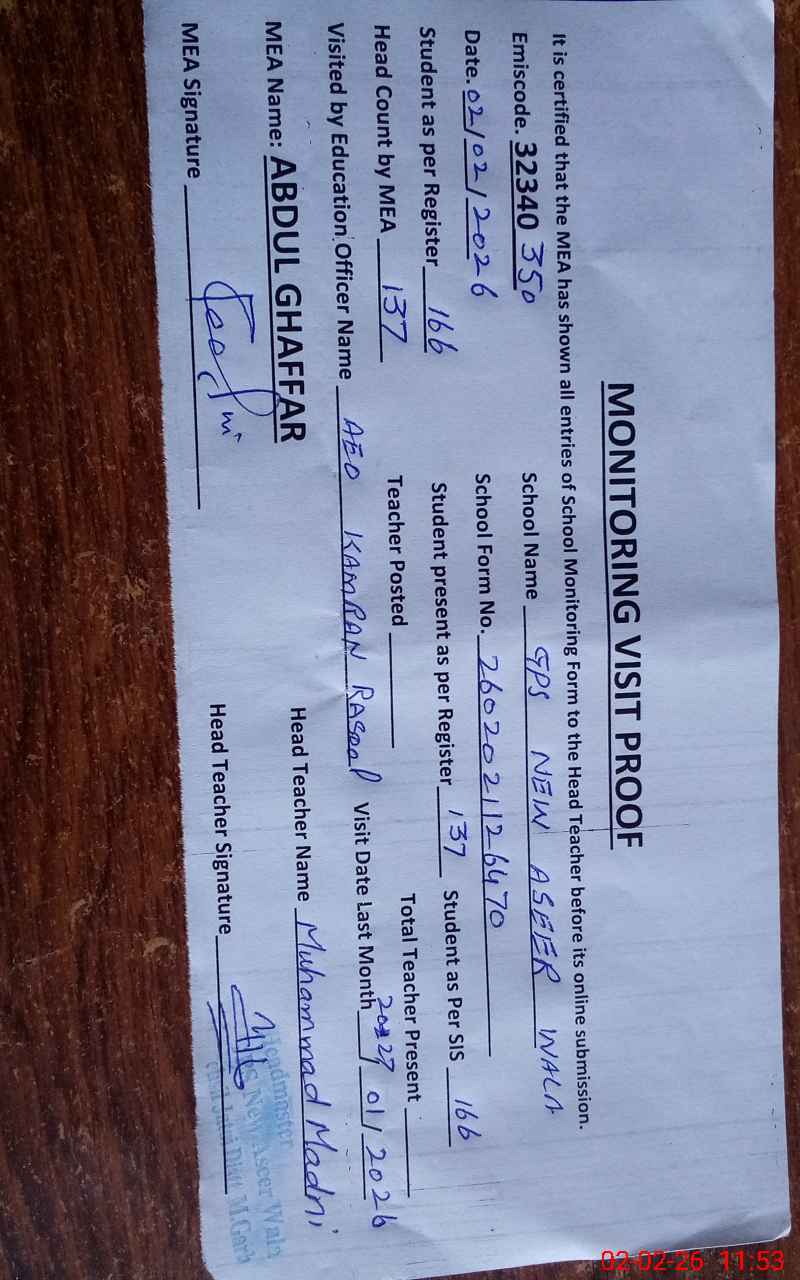 MONITORING VISIT PROOF
It is certified that the MEA has shown all entries of School Monitoring Form to the Head Teacher before its online submission.
Emiscode. 32340 350 School Name GPS NEW ASEER WALA
Date. 02/02/2026 School Form No. 2602021126470
Student as per Register 166 Student present as per Register 137 Student as Per SIS 166
Head Count by MEA 137 Teacher Posted Total Teacher Present
Visited by Education Officer Name AEO KAMRAN RASOOL Visit Date Last Month 27/01/2026
MEA Name: ABDUL GHAFFAR Head Teacher Name Muhammad Madni
MEA Signature Head Teacher Signature
Headmaster
New Aseer Wala
M.Garh
02-02-26 11:53